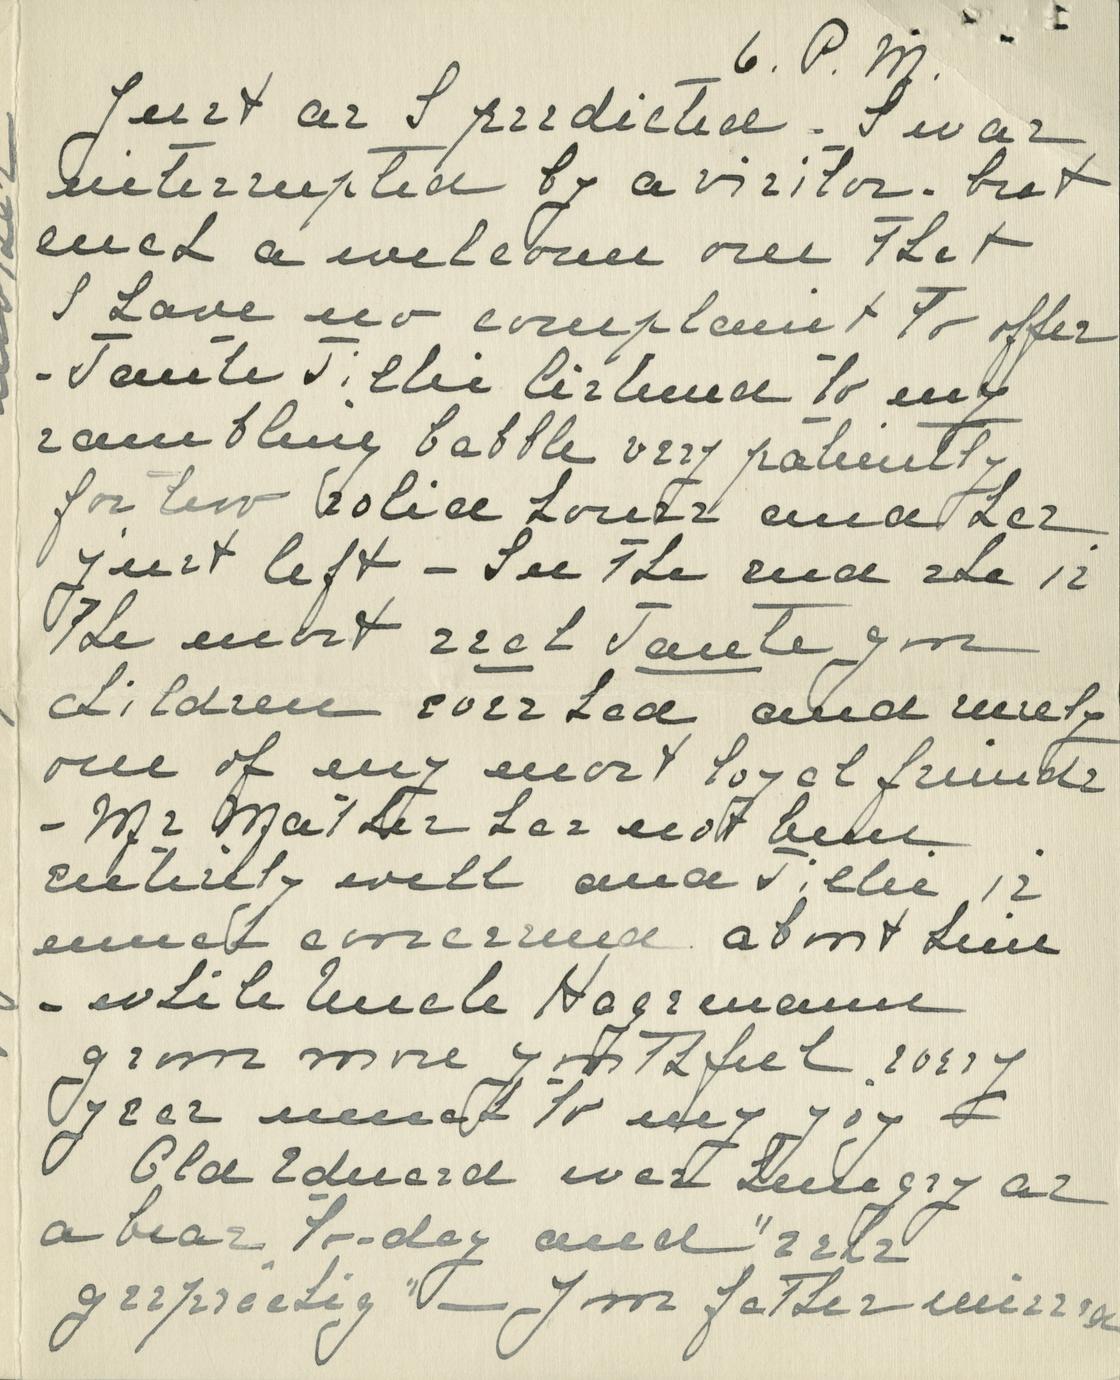 6. P. M.
Just as I predicted - I was
interrupted by a visitor - but
such a welcome one that
I have no complaint to offer
- Tante Tillie listened to my
rambling babble very patiently
for two solid hours and has
just left - In the end she is
the most real Tante you
children ever had and surely
one of my most loyal friends
- Mr Mather has not been
entirely well and Tillie is
much concerned about him
- while Uncle Hagemann
grows more youthful every
year much to my joy -
Old Eduard was hungry as
a bear to-day and "sehr
gesprächig" — Your father missed